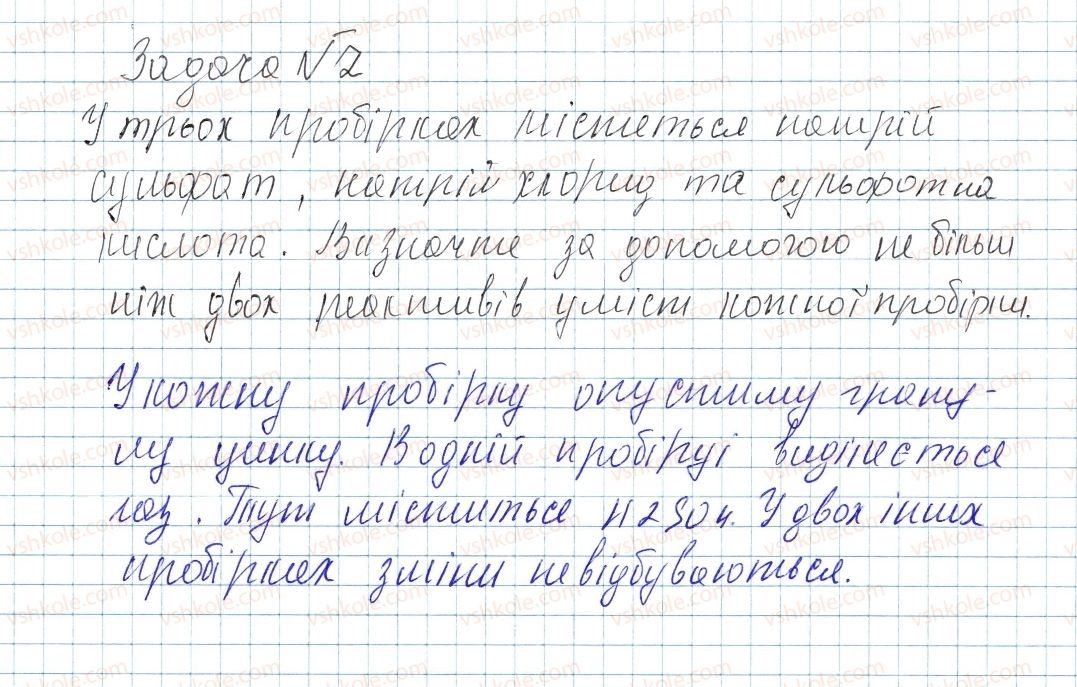 Задача №2
У трьох пробірках міститься натрій
сульфат, натрій хлорид та сульфатна
кислота. Визначте за допомогою не більш
ніж двох реактивів уміст кожної пробірки.
У кожну пробірку опустимо грану-
лу цинку. В одній пробірці виділиється
газ. Тут міститься H2SO4. У двох інших
пробірках зміни не відбуваються.